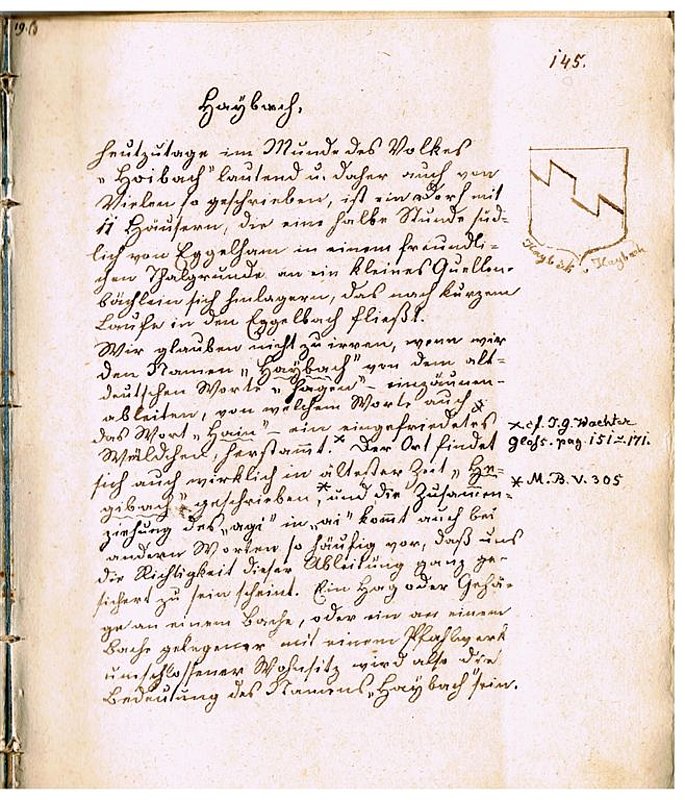 19.
145.
Haybach,
heutzutage im Munde des Volkes
„Hoibach" lautend u. daher auch von
Vielen so geschrieben, ist ein Dorf mit
11 Häusern, die eine halbe Stunde süd-
lich von Eggelham in einem freundli-
chen Thalgrunde an ein kleines Quellen-
bächlein sich hinlagern, das nach kurzem
Laufe in den Eggelbach fließt.
Wir glauben nicht zu irren, wenn wir
den Namen „Haybach" von dem alt-
deutschen Worte „hagen" – einzäunen –
ableiten, von welchem Worte auch
das Wort „Hain" – ein eingefriedetes
Wäldchen, herstammt.× Der Ort findet
sich auch wirklich in ältester Zeit „He-
gibach" geschrieben,* und die Zusammen-
ziehung des „agi" in „ai" kommt auch bei
andern Worten so häufig vor, daß uns
die Richtigkeit dieser Ableitung ganz ge-
sichert zu sein scheint. Ein Hag oder Gehä-
ge an einem Bache, oder ein an einem
Bache gelegener mit einem Pfahlwerk
umschlossener Wohnsitz wird also die
Bedeutung des Namens „Haybach" sein.
Haybeck v. Haybach
× cf. J. G. Wachter
Gloss. pag. 151 171.
* M. B. V. 305